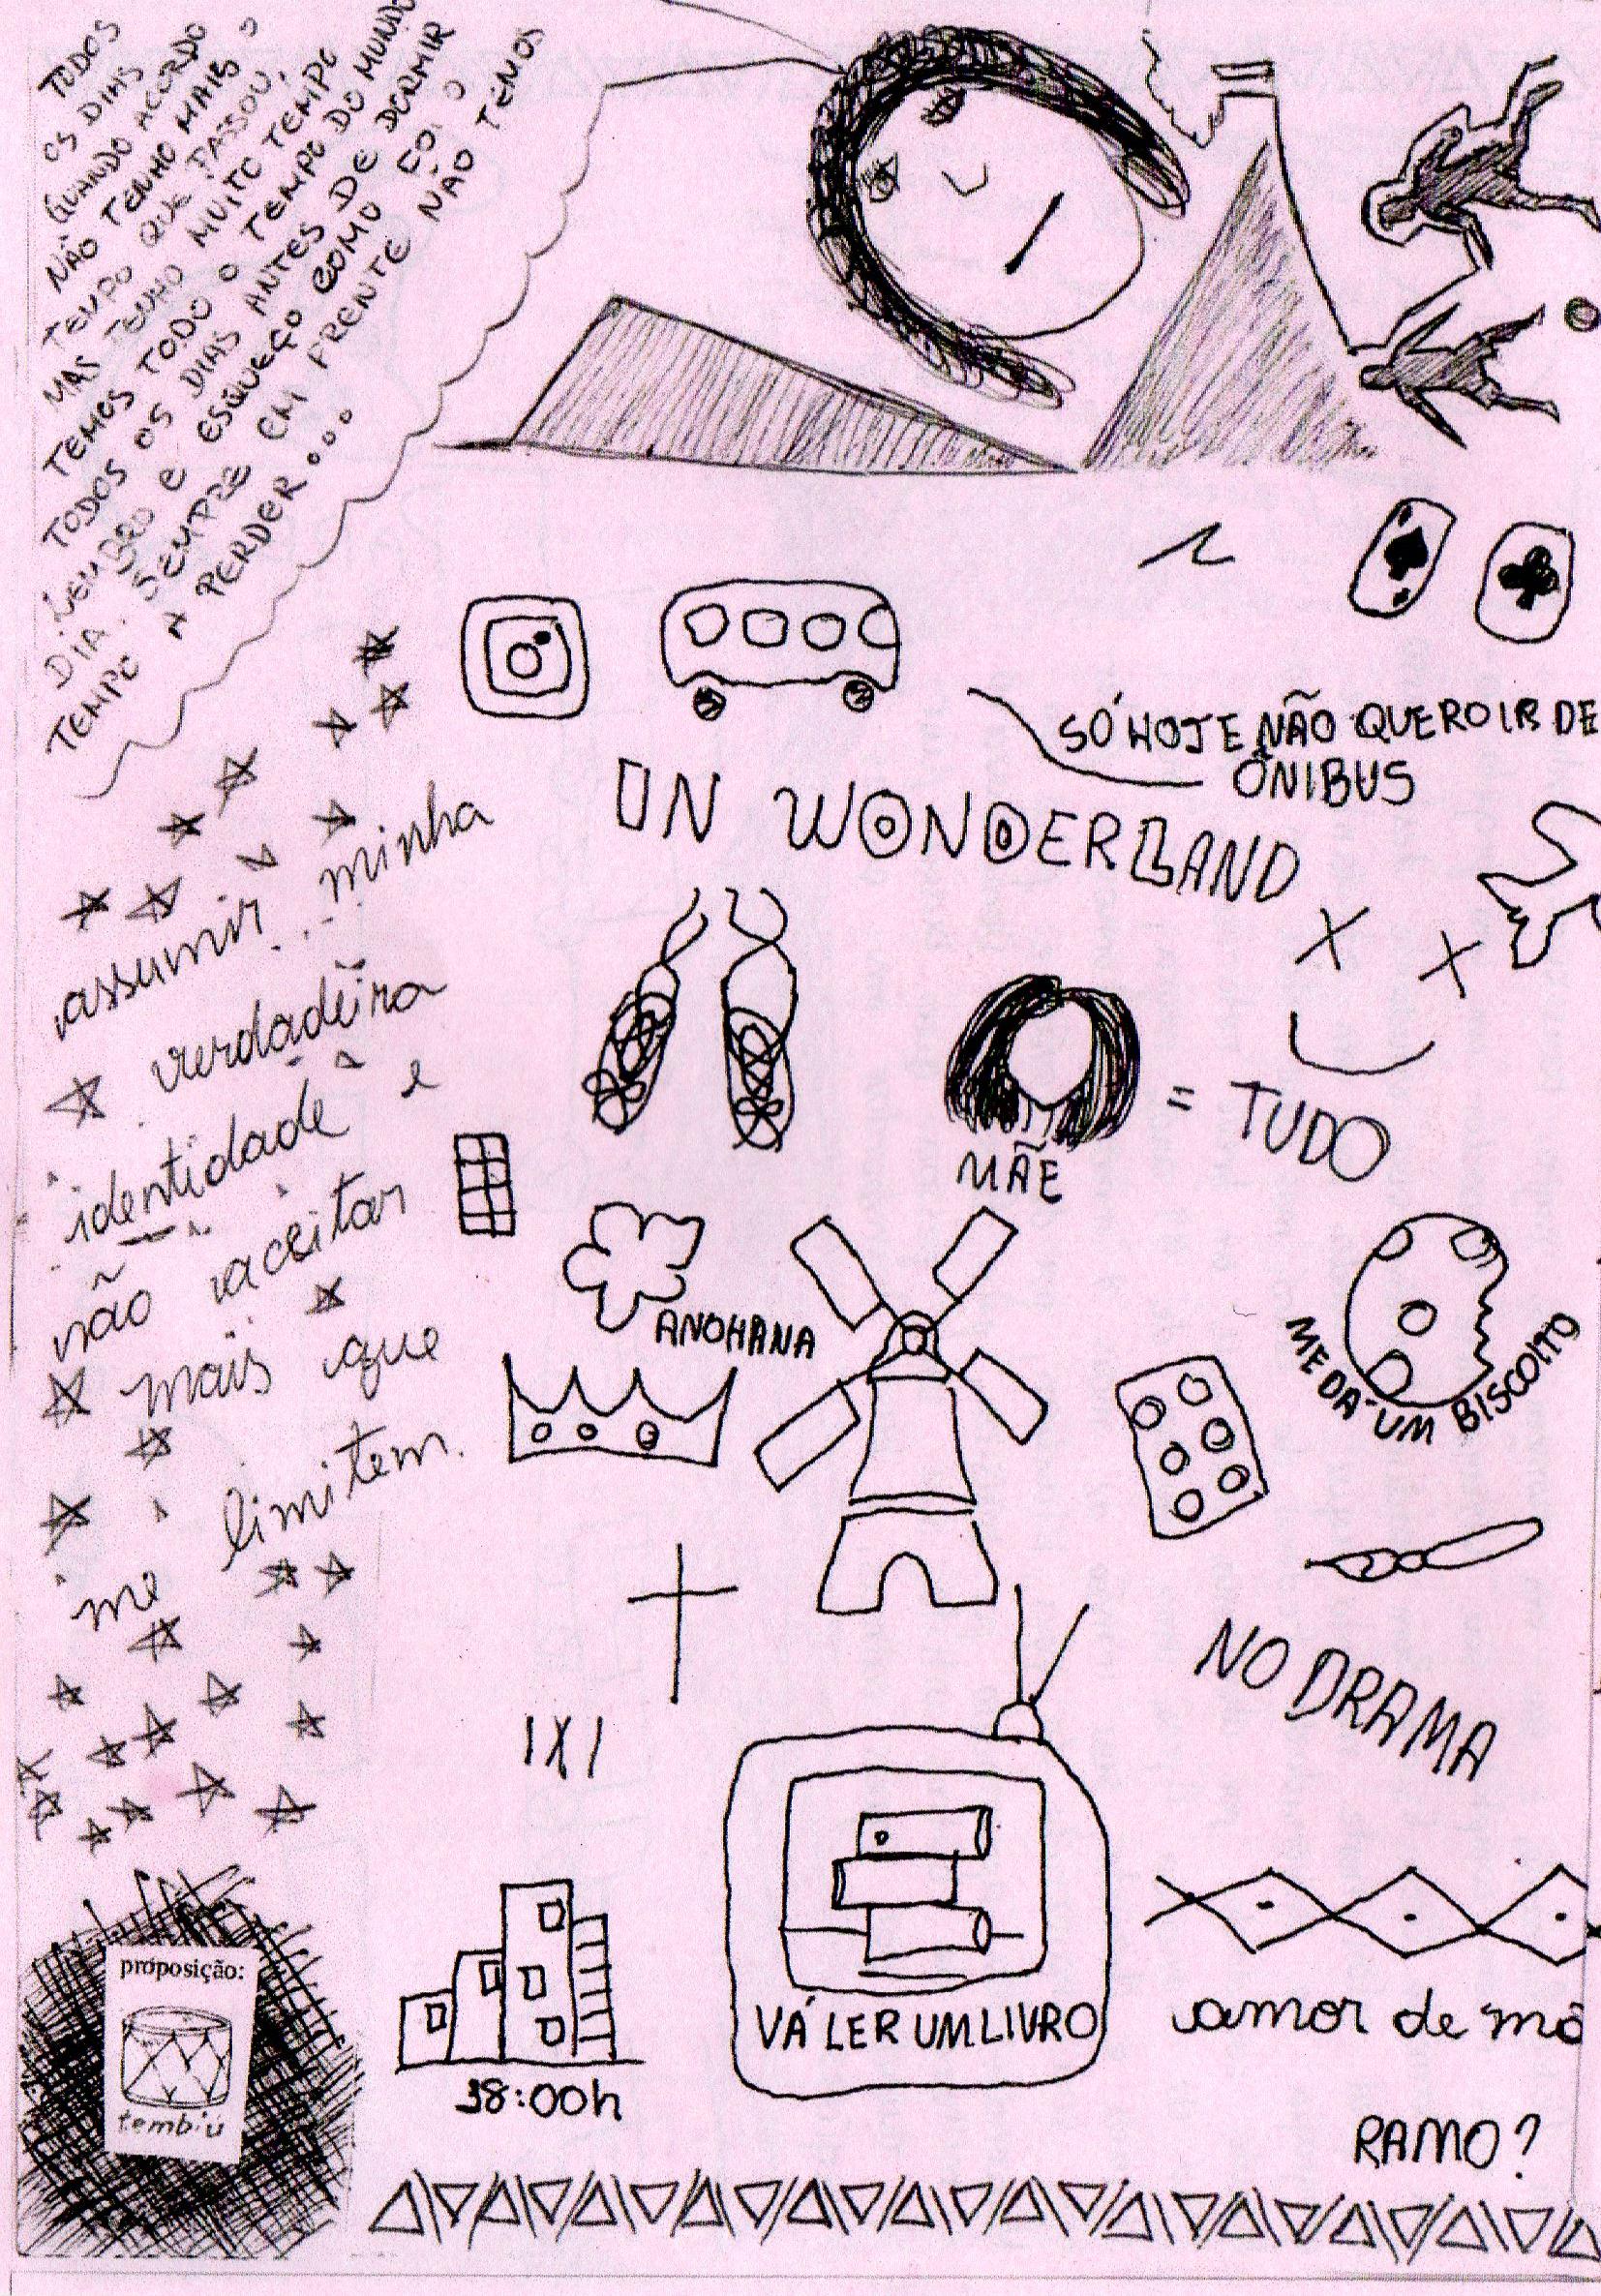 TODOS
OS DIAS
QUANDO ACORDO
NÃO TENHO MAIS O
TEMPO QUE PASSOU,
MAS TENHO MUITO TEMPO
TEMOS TODO O TEMPO DO MUNDO
TODOS OS DIAS ANTES DE DORMIR
LEMBRO E ESQUEÇO COMO FOI O
DIA. SEMPRE EM FRENTE NÃO TEMOS
TEMPO A PERDER...
SÓ HOJE NÃO QUERO IR DE
ÔNIBUS
IN WONDERLAND
assumir minha
verdadeira
identidade e
não aceitar
mais que
me limitem.
MÃE
= TUDO
ANOHANA
ME DÁ UM BISCOITO
NO DRAMA
VÁ LER UM LIVRO
18:00h
amor de mã
RAMO?
proposição:
tembiú